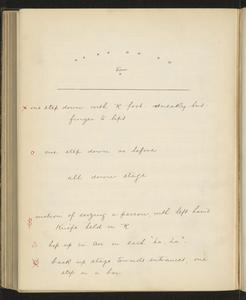 x one step down with R foot sneaky but
finger to lips
o one step down as before
all down stage
§ motion of seizing a person, with left hand
Knife held in R
hop up in air on each "ha, ha".
back up stage towards entrances, one
step in a bar